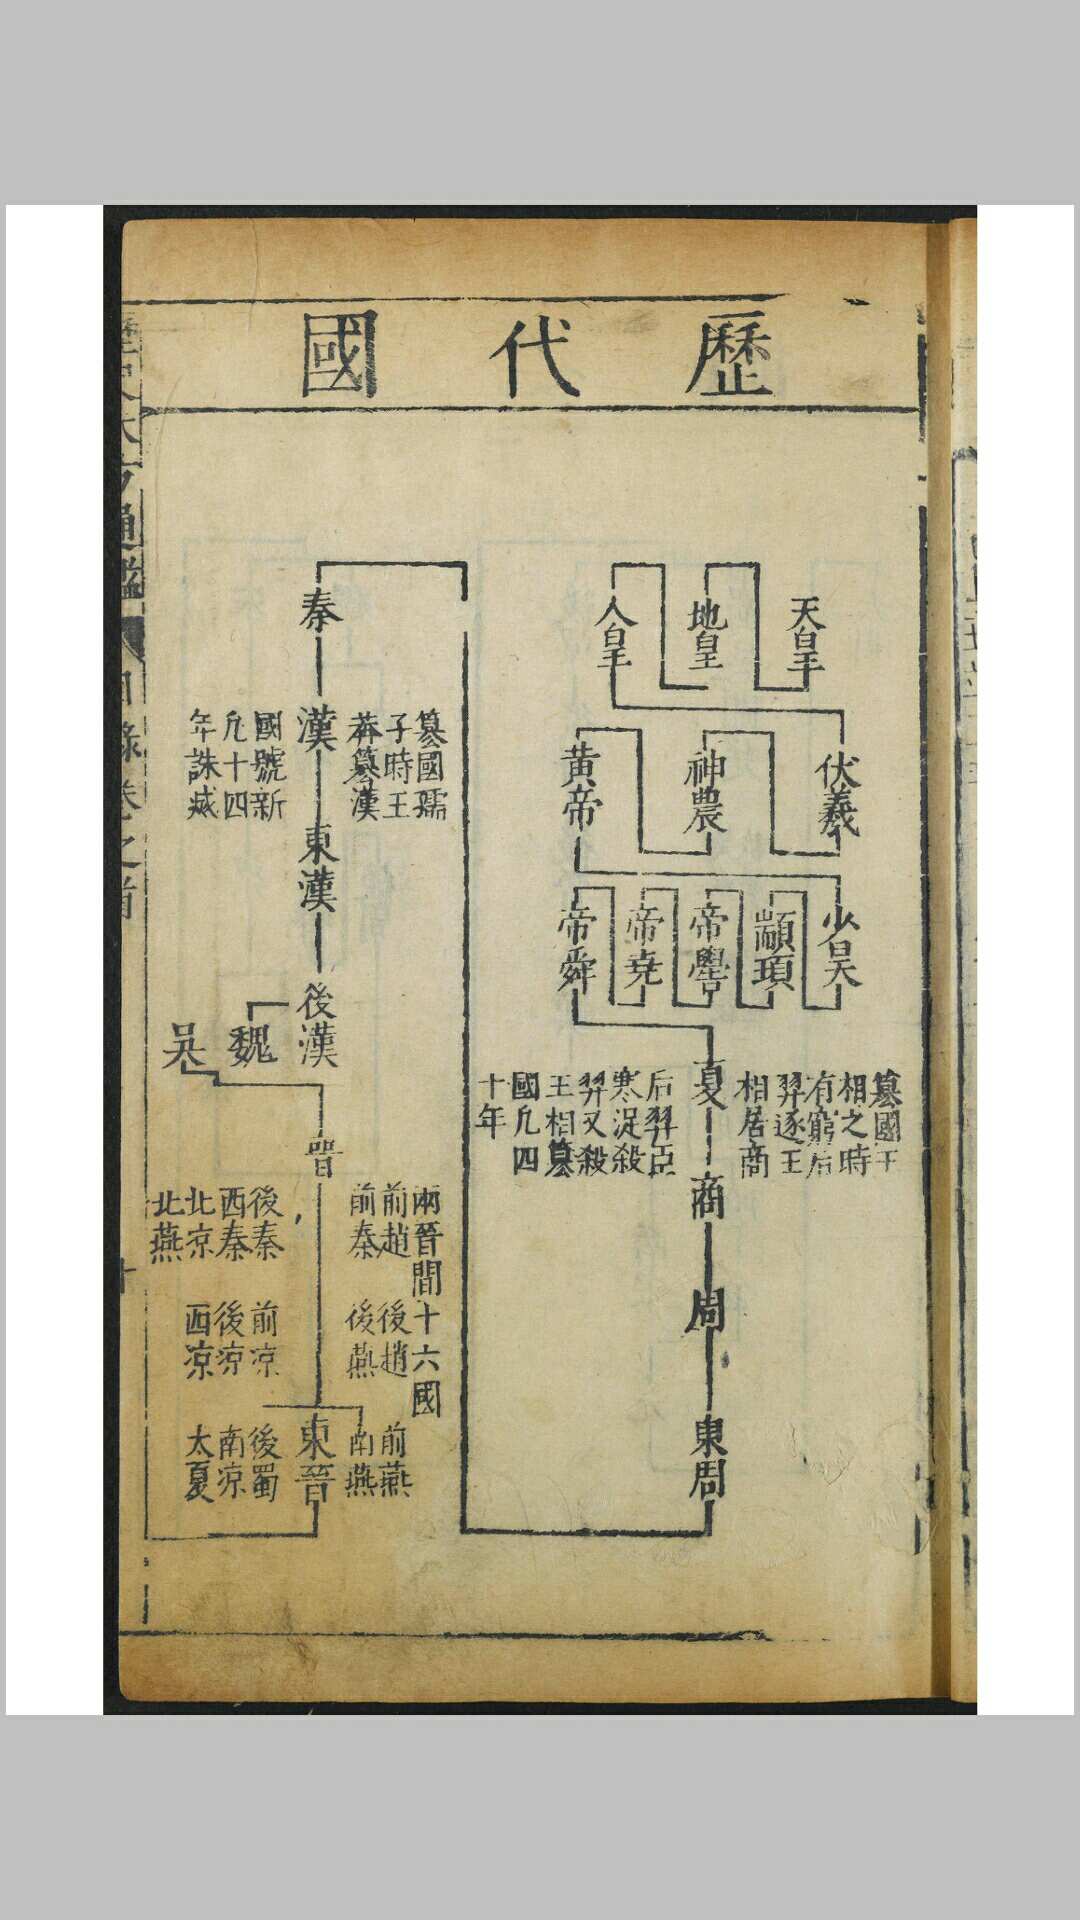 歷代國
天皇
地皇
人皇
伏羲
神農
黃帝
少昊
顓頊
帝嚳
帝堯
帝舜
夏
簒國王
相之時
有窮后
羿逐王
相居商
后羿臣
寒浞殺
羿又殺
王相簒
國凡四
十年
商
周
東周
秦
漢
簒國孺
子時王
莽簒漢
國號新
凡十四
年誅滅
東漢
後漢
魏
吳
晋
兩晉間十六國
前趙 後趙 前燕
前秦 後燕 南燕
後秦 前凉 後蜀
西秦 後凉 南凉
北凉 西凉 大夏
北燕
東晉
通鑑
目錄卷之首